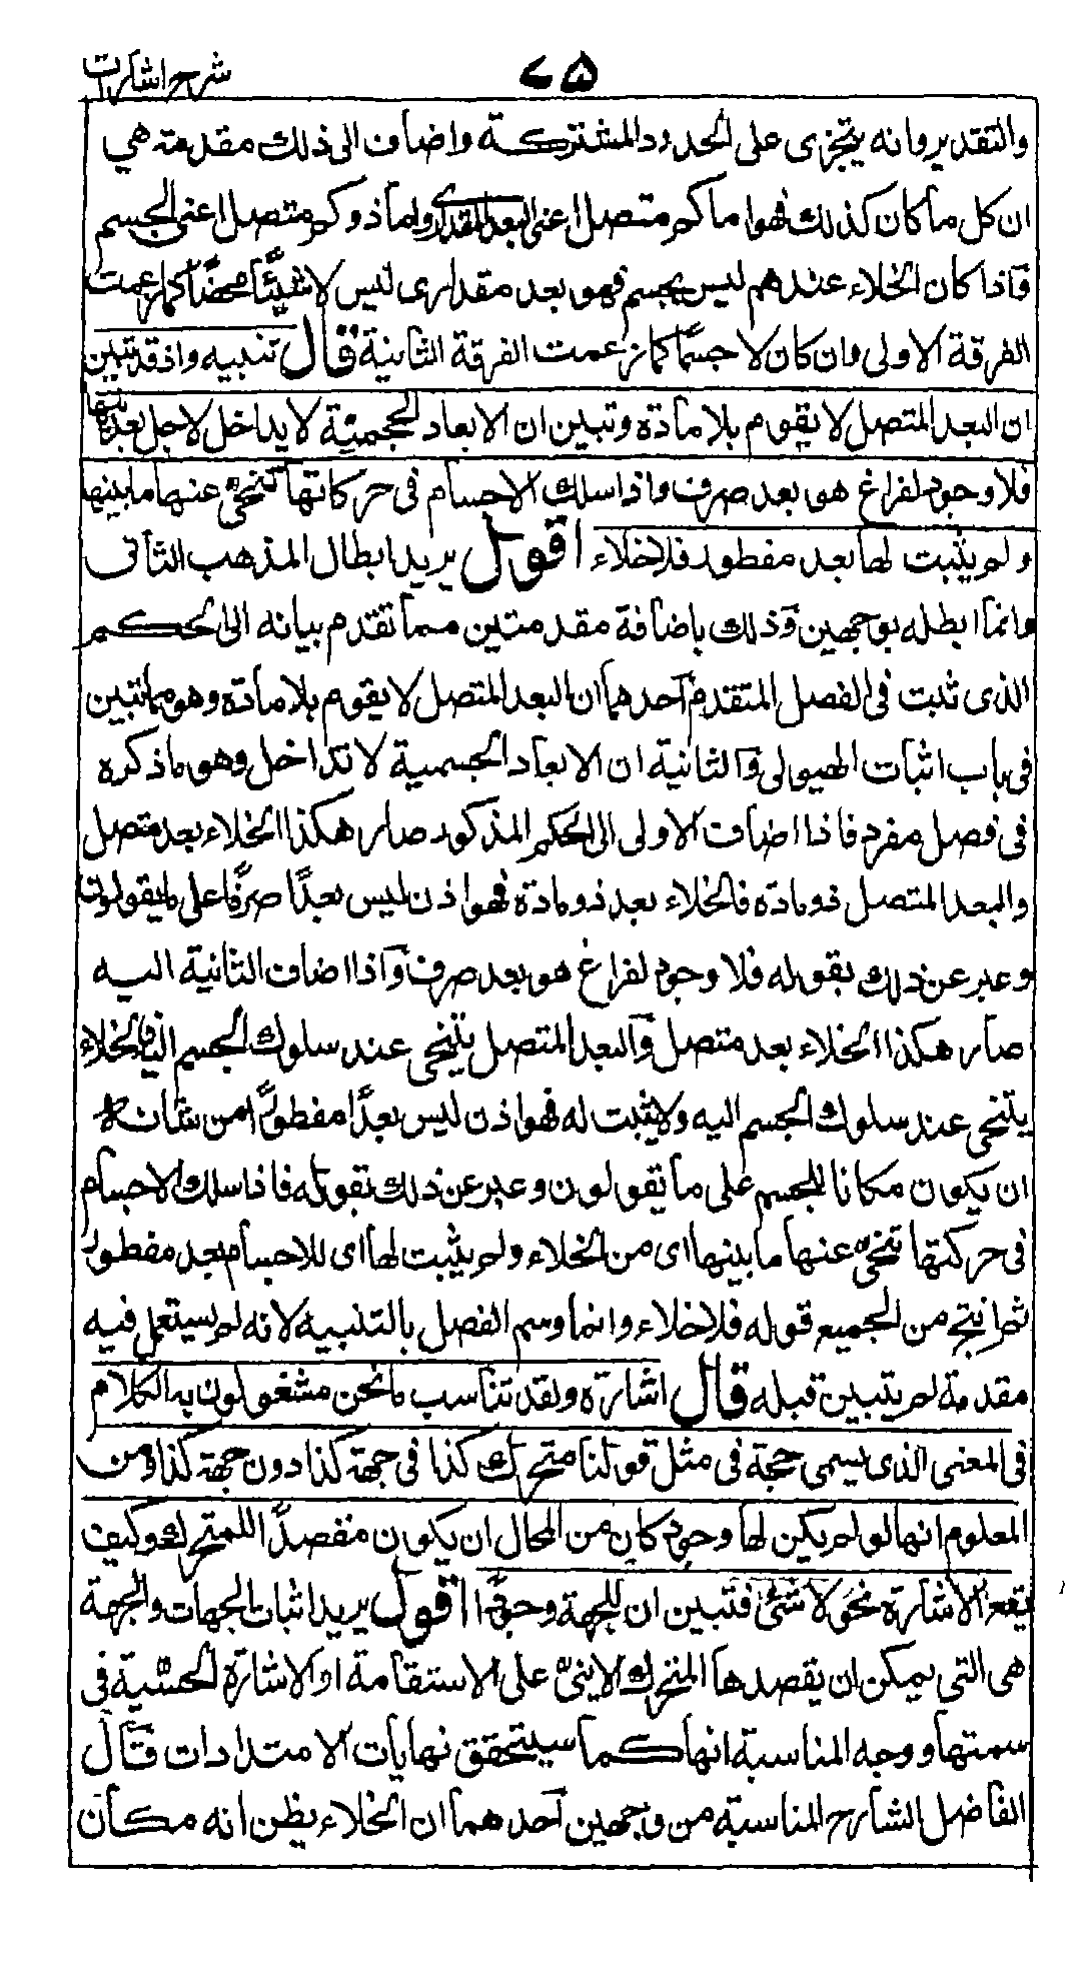 شرح اشارات
٧٥
والتقدير وانه يتجزى على الحدود المشتركة واضاف الى ذلك مقدمة هي
ان كل ما كان كذلك فهو اما كم متصل اعنى البعد المقدارى واما ذو كم متصل اعنى الجسم
فاذا كان الخلاء عندهم ليس بجسم فهو بعد مقدارى ليس لا شيئًا محضًا كما زعمت
الفرقة الاولى وان كان لا جسمًا كما زعمت الفرقة الثانية قال تنبيه واذ قد تبين
ان البعد المتصل لا يقوم بلا مادة وتبين ان الابعاد الحجمية لا يداخل لاجل بعديتها
فلا وجود لفراغ هو بعد صرف واذا سلك الاجسام فى حركاتها تنحى عنها ما بينها
ولم يثبت لها بعد مفطور فلا خلاء اقول يريد ابطال المذهب الثانى
وانما ابطله بوجهين وذلك باضافة مقدمتين مما تقدم بيانه الى الحكم
الذى ثبت فى الفصل المتقدم احدهما ان البعد المتصل لا يقوم بلا مادة وهو مما تبين
فى باب اثبات الهيولى والثانية ان الابعاد الجسمية لا تتداخل وهو ما ذكره
فى فصل مفرد فاذا اضاف الاولى الى الحكم المذكور صار هكذا الخلاء بعد متصل
والبعد المتصل ذو مادة فالخلاء بعد ذو مادة فهو اذن ليس بعدًا صرفًا على ما يقولون
وعبر عن ذلك بقوله فلا وجود لفراغ هو بعد صرف واذا اضاف الثانية اليه
صار هكذا الخلاء بعد متصل والبعد المتصل يتنحى عند سلوك الجسم اليه فالخلاء
يتنحى عند سلوك الجسم اليه ولا يثبت له فهو اذن ليس بعدًا مفطورًا من شانه
ان يكون مكانا للجسم على ما تقولون وعبر عن ذلك بقوله فاذا سلك الاجسام
فى حركتها تنحى عنها ما بينها اى من الخلاء ولم يثبت لها اى للاجسام بعد مفطور
ثم انتج من الجميع قوله فلا خلاء وانما وسم الفصل بالتنبيه لانه لم يستعمل فيه
مقدمة لم يتبين قبله قال اشارة ولقد تناسب ما نحن مشغولون به الكلام
فى المعنى الذى يسمى جهة فى مثل قولنا متحرك كذا فى جهة كذا دون جهة كذا ومن
المعلوم انها لو لم يكن لها وجود كان من المحال ان يكون مقصدًا للمتحرك وكيف
تقع الاشارة نحو لا شئ فتبين ان للجهة وجودًا اقول يريد اثبات الجهات والجهة
هى التى يمكن ان يقصدها المتحرك الاينى على الاستقامة او الاشارة الحسية فى
سمتها ووجه المناسبة انها كما سيتحقق نهايات الامتدادات قال
الفاضل الشارح المناسبة من وجهين احدهما ان الخلاء يظن انه مكان